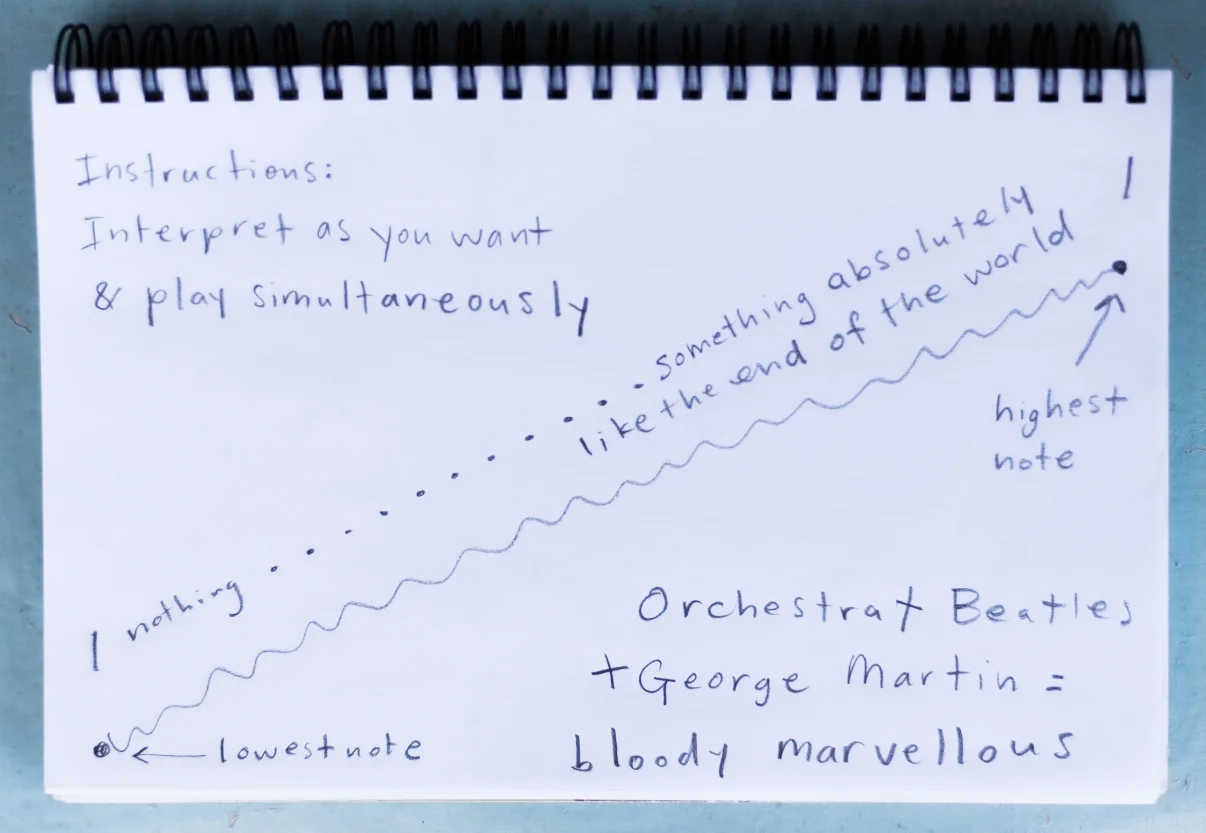 Instructions:
Interpret as you want
& play simultaneously
nothing . . . . . . . . . . . something absolutely
like the end of the world
highest
note
lowest note
Orchestra + Beatles
+ George Martin =
bloody marvellous